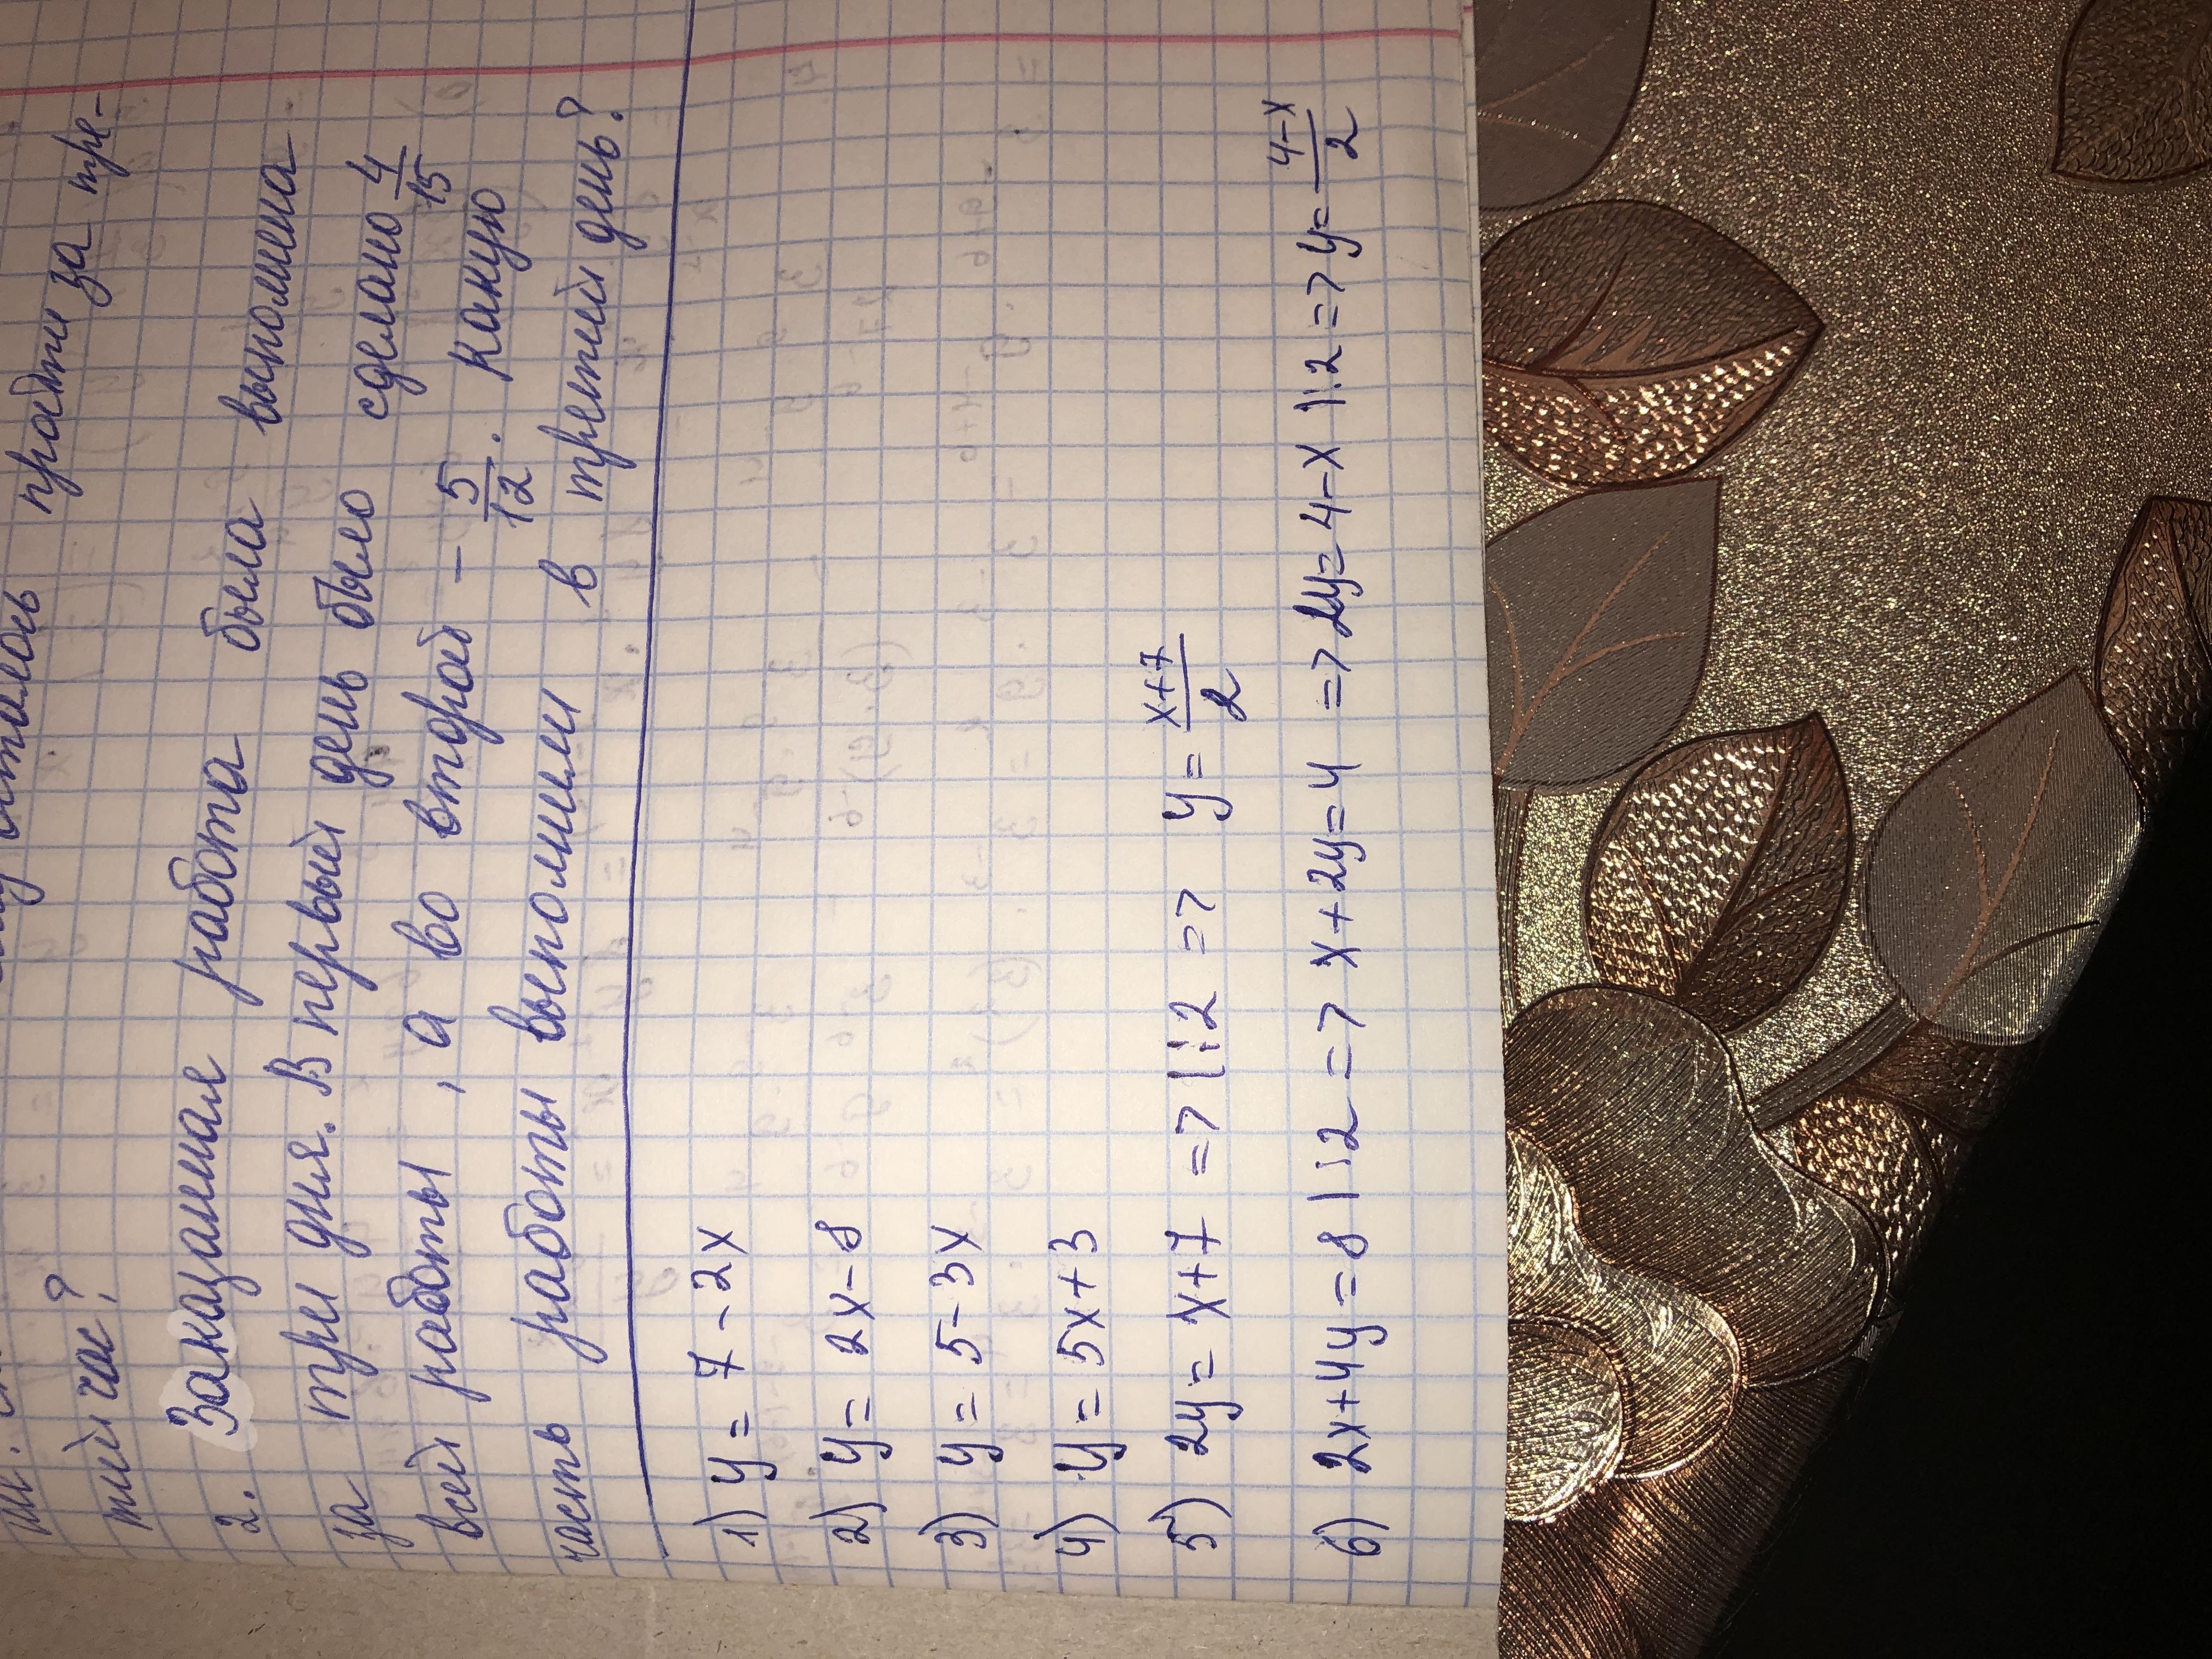 тилось пройти за тре-
тий час?
2. Заказаная работа была выполнена
за три дня. В первый день было сделано 4/15
всей работы, а во второй - 5/12. Какую
часть работы выполнили в третий день?
1) y = 7 - 2x
2) y = 2x - 8
3) y = 5 - 3x
4) y = 5x + 3
5) 2y = x + 7 => |:2 => y = x+7/2
6) 2x + 4y = 8 |:2 => x + 2y = 4 => 2y = 4 - x |:2 => y = 4-x/2